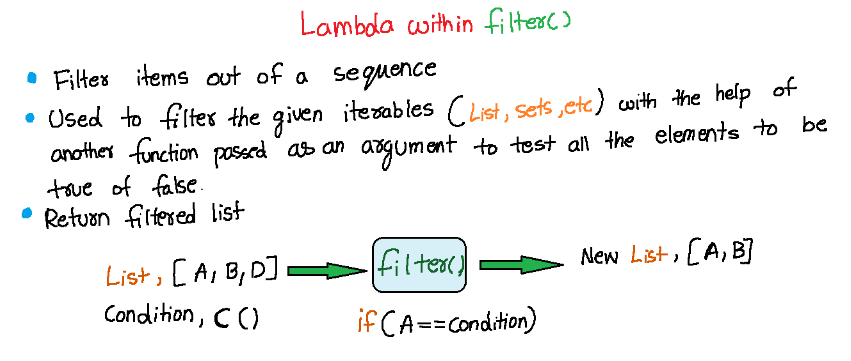 Lambda within filter()
• Filter items out of a sequence
• Used to filter the given iterables (List, sets, etc) with the help of
another function passed as an argument to test all the elements to be
true of false.
• Return filtered list
List, [A, B, D]
filter()
New List, [A, B]
Condition, C ()
if (A==condition)